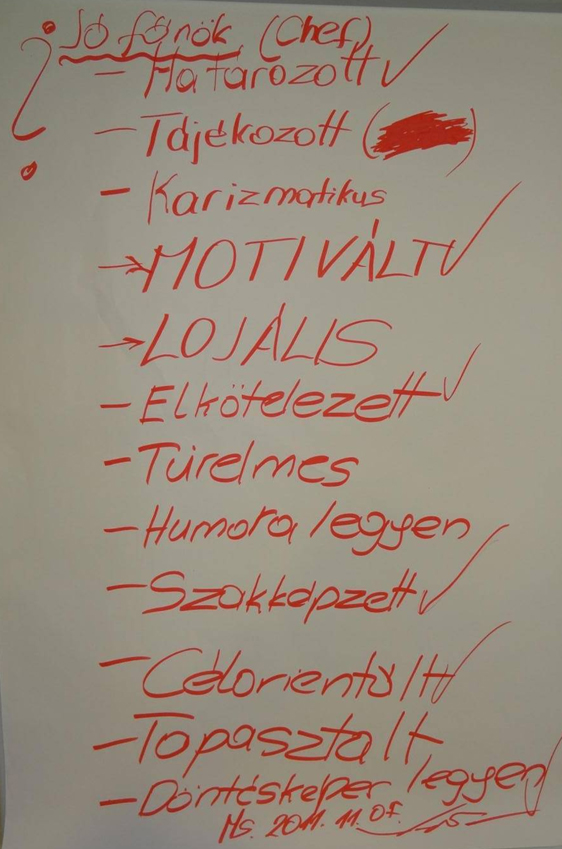 Jó főnök (Chef)
- Határozott ✓
- Tájékozott
- Karizmatikus
→ MOTIVÁLT ✓
→ LOJÁLIS
- Elkötelezett ✓
- Türelmes
- Humora legyen
- Szakképzett ✓
- Célorientált ✓
- Tapasztalt
- Döntésképes legyen ✓
2011. 11.